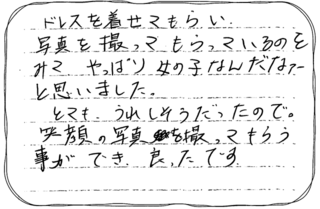 ドレスを着せてもらい.
写真を撮ってもらっているのを
みて やっぱり女の子なんだなァー
と思いました。
とても うれしそうだったので。
笑顔の写真を撮ってもらう
事ができ 良ったです